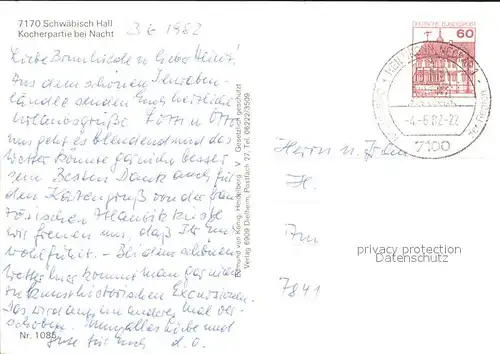 7170 Schwäbisch Hall
Kocherpartie bei Nacht
3.6.1982
Liebe Brunhilde u. lieber Heinz!
Aus dem schönen Schwaben-
ländle senden Euch herzliche
Urlaubsgrüße Lotti u. Otto
uns geht es blendend und das
Wetter könnte gar nicht besser
sein Besten Dank auch für
den Kartengruß von der fran-
zösischen Atlantikküste
wir freuen uns, daß Ihr Euch
wohl fühlt. - Bei dem schönen
Wetter hier kommt man gar nicht
zu kunsthistorischen Exkursionen.
Das wird auf ein anderes Mal ver-
schoben. Nun alles Liebe und
Gute für Euch d. O.
Nr. 1085
Edmund von König, Heidelberg V Gesetzlich geschützt
Verlag 6909 Dielheim, Postfach 27, Tel. 06222/
DEUTSCHE BUNDESPOST
60
HEILBRONN, NECKAR 1
-4.-6.82-22
7100
Herrn u. Frau
H.
Am
7841
privacy protection
Datenschutz